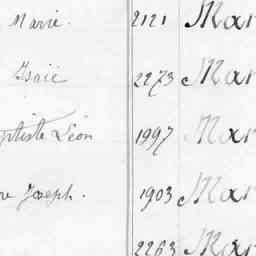 Marie. 2121 Mar
Isaïe 2273 Mar
ptiste Léon 1997 Mar
re Joseph. 1903 Mar
2263 Mar